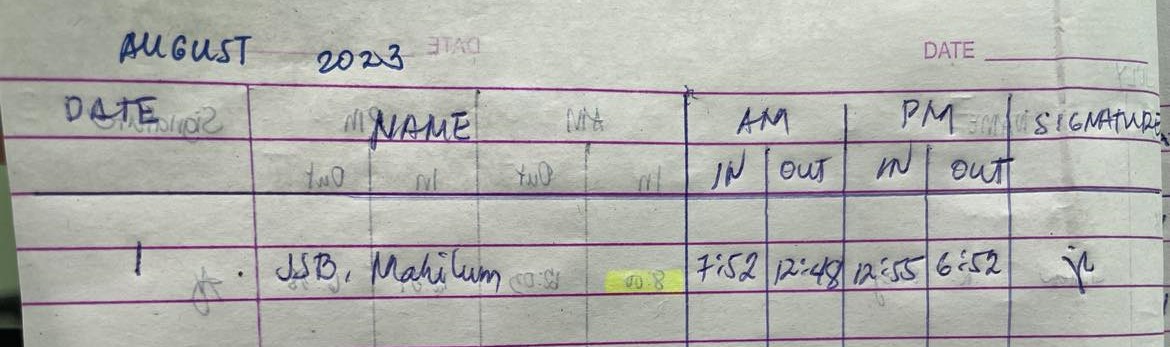 AUGUST 2023 DATE
DATE NAME AM PM SIGNATURE
IN OUT IN OUT
1 JSB. Mahilum 7:52 12:48 12:55 6:52